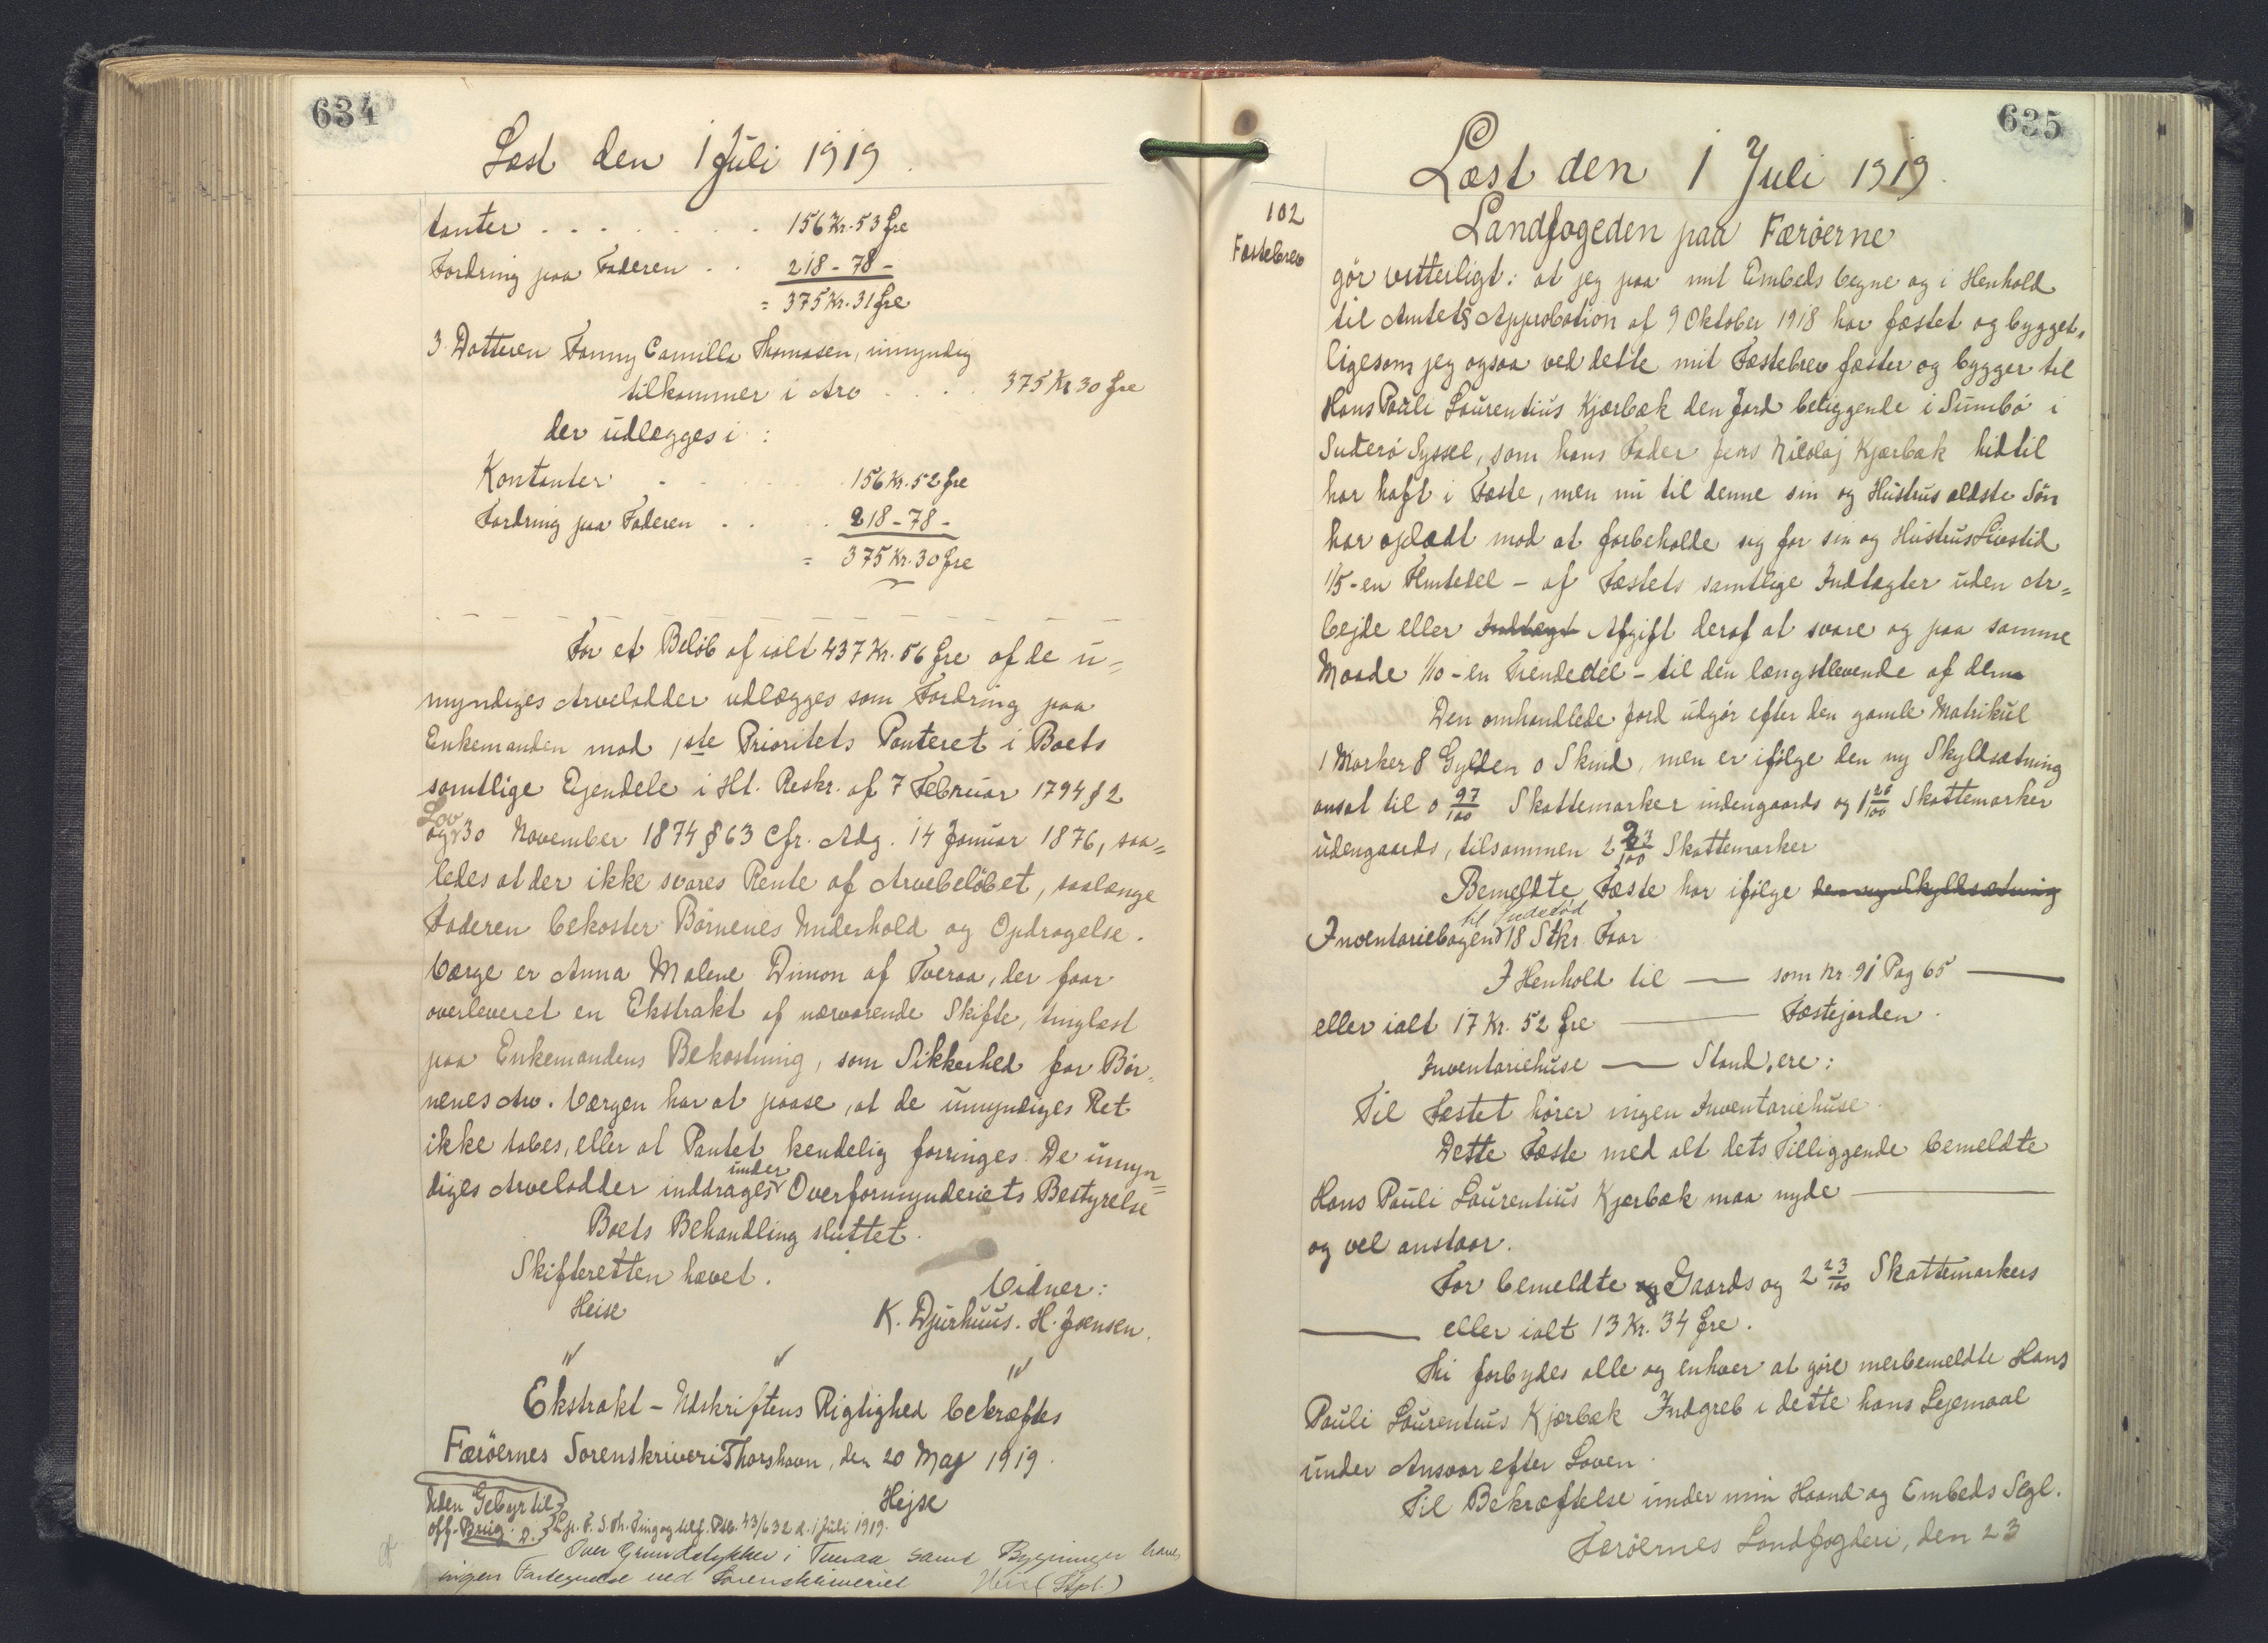 634
Læst den 1 Juli 1919.
tanter . . . . . . . 156 Kr. 53 Øre
Fordring paa Faderen . . 218 - 78 -
= 375 Kr. 31 Øre
3. Datteren Fanny Camilla Thomasen, umyndig
tilkommer i Arv . . . . 375 Kr 30 Øre
der udlægges i :
Kontanter . . . . . 156 Kr. 52 Øre
Fordring paa Faderen . . . 218 - 78 -
= 375 Kr. 30 Øre
For et Beløb af ialt 437 Kr. 56 Øre af de u=
myndiges Arvelodder udlægges som Fordring paa
Enkemanden mod 1ste Prioritets Panteret i Boets
samtlige Ejendele i Hl. Reskr. af 7 Februar 1794 § 2
og Lov 30 November 1874 § 63 cfr. Adg. 14 Januar 1876, saa=
ledes at der ikke svares Rente af Arvebeløbet, saalænge
Faderen bekoster Børnenes Underhold og Opdragelse.
Værge er Anna Malene Dimon af Tveraa, der faar
overleveret en Ekstrakt af nærværende Skifte, tinglæst
paa Enkemandens Bekostning, som Sikkerhed for Bør=
nenes Arv. Værgen har at paase, at de umyndiges Ret
ikke tabes, eller at Pantet kendelig forringes. De umyn=
diges Arvelodder inddrages under Overformynderiets Bestyrelse
Boets Behandling sluttet.
Skifteretten hævet.
Heise
Vidner:
K. Djurhuus. H. Joensen.
Ekstrakt - Udskriftens Rigtighed bekræftes
Færøernes Sorenskriveri Thorshavn, den 20 Maj 1919.
Hejse
Uden Gebyr til
off. Brug.
43/632 d. 1 Juli 1919.
Over Grundstykker i Tveraa samt Bygninger haves
ingen Forteynelse ved Sorenskriveriet Heise (Stpl.)
635
Læst den 1 Juli 1919.
102
Fæstebrev
Landfogeden paa Færøerne
gør vitterligt: at jeg paa mit Embeds Vegne og i Henhold
til Amtets Approbation af 9 Oktober 1918 har fæstet og bygget,
ligesom jeg ogsaa ved dette mit Fæstebrev fæster og bygger til
Hans Pauli Laurentius Kjærbæk den Jord beliggende i Sumbø i
Suderø Syssel, som hans Fader Jens Nikolaj Kjærbæk hidtil
har haft i Fæste, men nu til denne sin og Hustrus ældste Søn
har opladt mod at forbeholde sig for sin og Hustrus Livstid
1/5 - en Femtedel - af Fæstets samtlige Indtægter uden Ar=
bejde eller Indtægt Afgift deraf at svare og paa samme
Maade 1/10 - en Tiendedel - til den længstlevende af dem
Den omhandlede Jord udgør efter den gamle Matrikul
1 Marker 8 Gylden 0 Skind, men er ifølge den ny Skyldsætning
ansat til 0 97/100 Skattemarker indengaards og 1 26/100 Skattemarker
udengaards, tilsammen 2 23/100 Skattemarker
Bemeldte Fæste har ifølge den ny Skyldsætning
Inventariebogen til Fudefød 18 Stkr. Faar
I Henhold til — som Nr. 91 Pag 65 —
eller ialt 17 Kr. 52 Øre — Fæstejorden.
Inventariehuse — Stand, ere:
Til Fæstet hører ingen Inventariehuse.
Dette Fæste med alt dets Tilliggende bemeldte
Hans Pauli Laurentius Kjærbæk maa nyde —
og vel anstaar.
For bemeldte og Gaards og 2 23/100 Skattemarkers
— eller ialt 13 Kr. 34 Øre.
Thi forbydes alle og enhver at gøre merbemeldte Hans
Pauli Laurentius Kjærbæk Indgreb i dette hans Lejemaal
under Ansvar efter Loven.
Til Bekræftelse under min Haand og Embeds Segl.
Færøernes Landfogderi, den 23